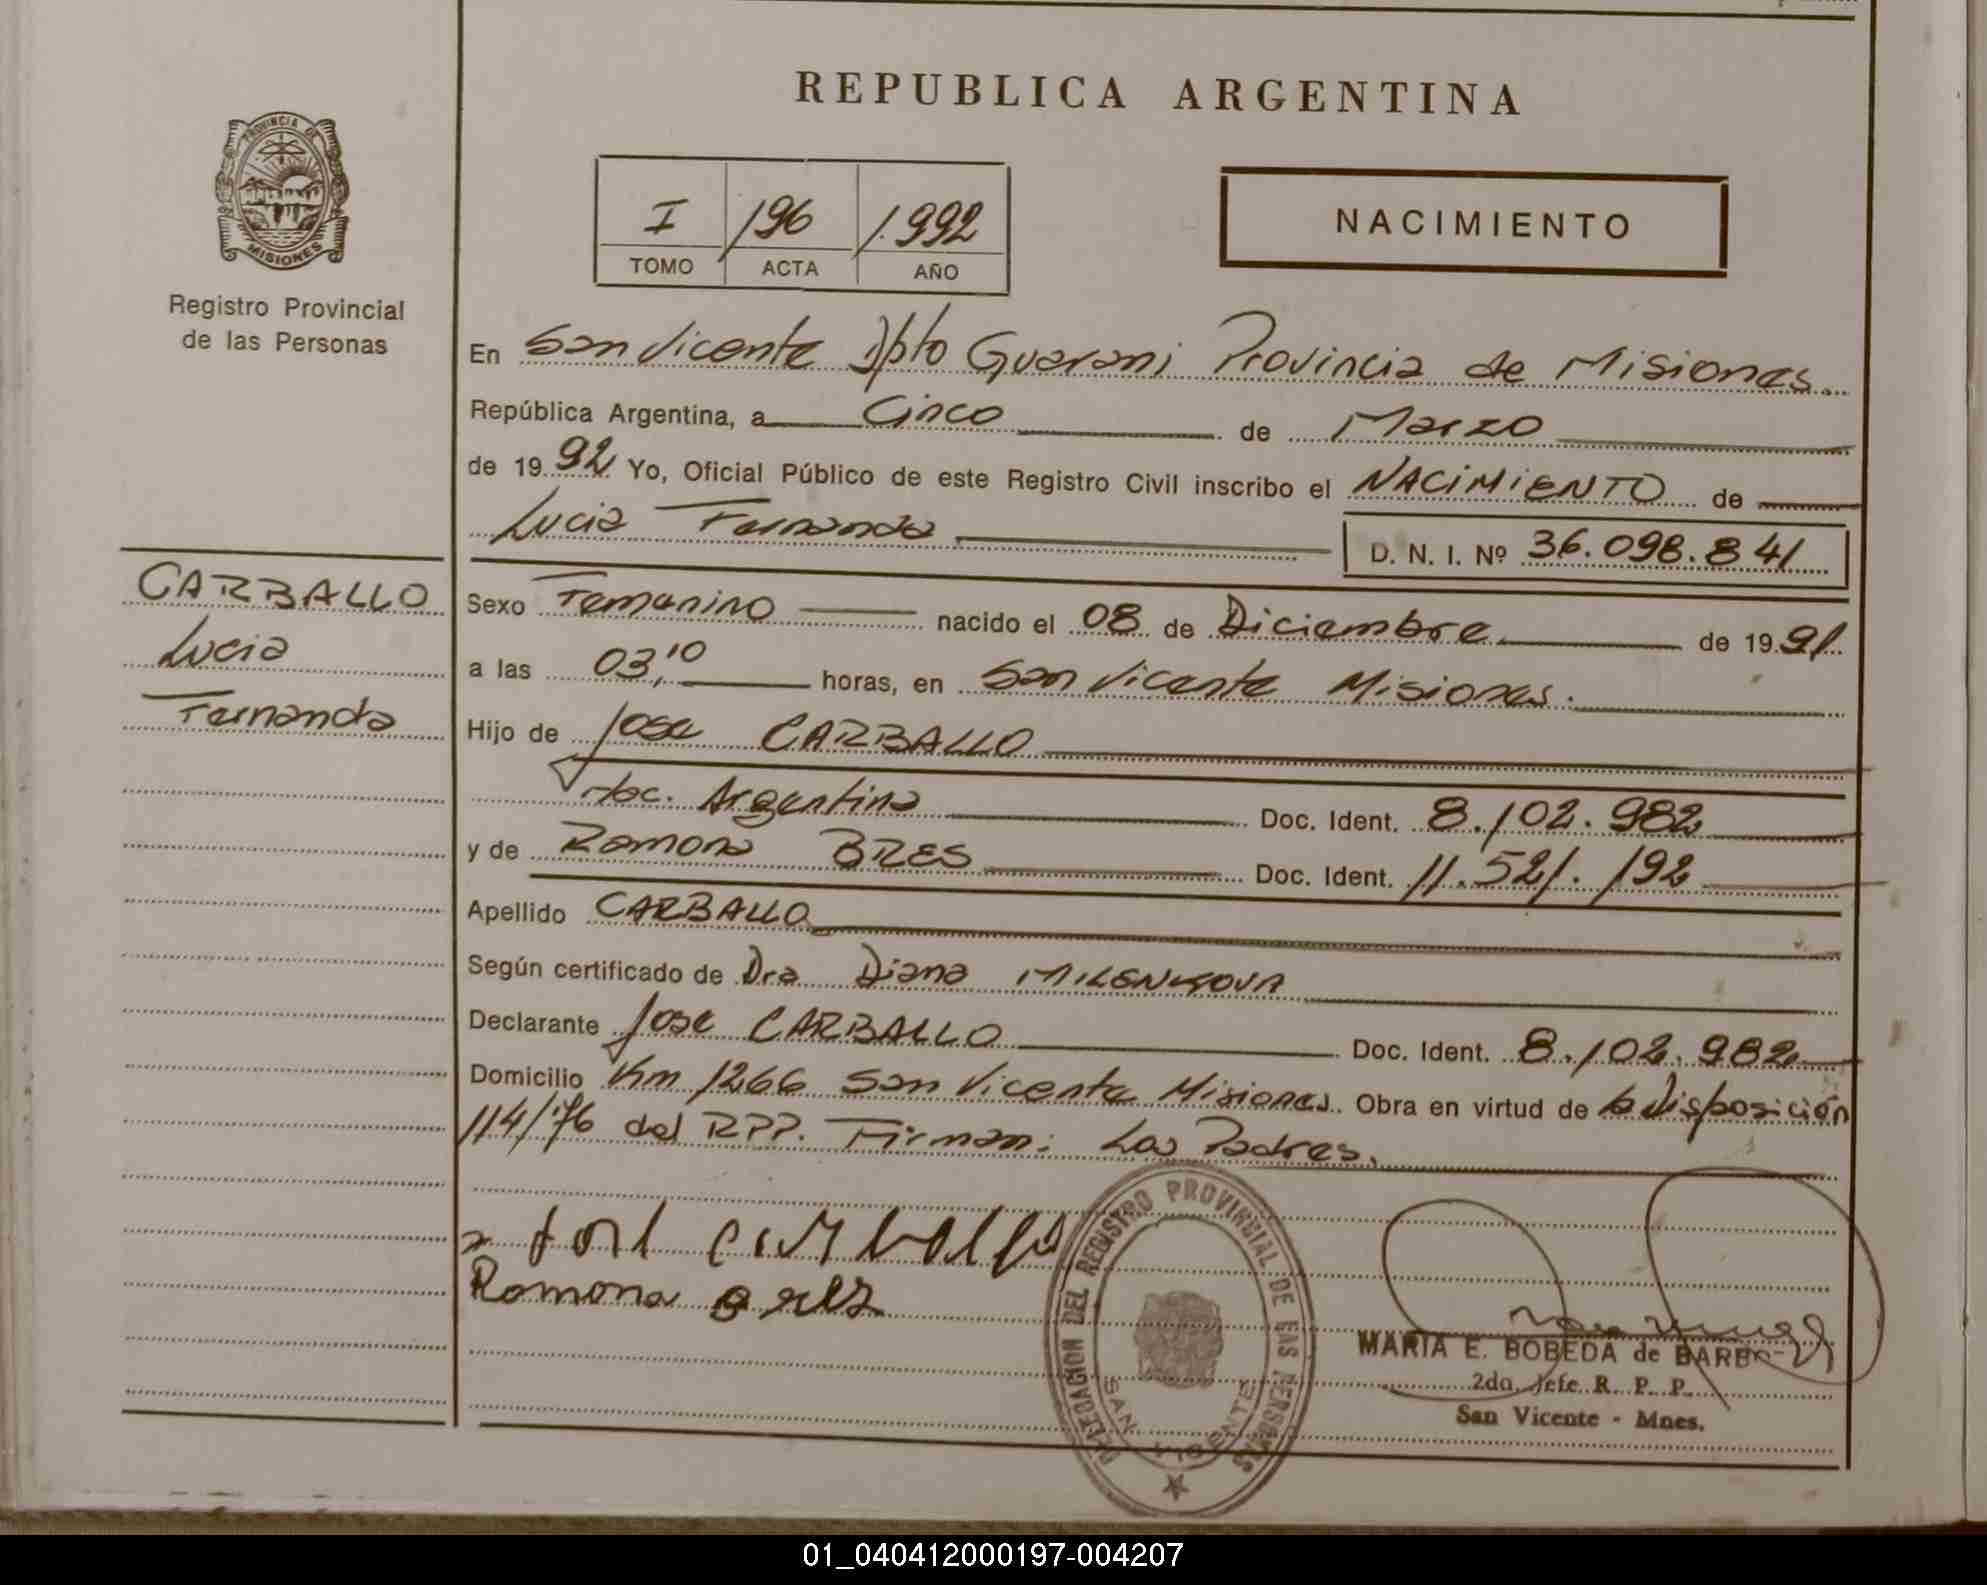 REPUBLICA ARGENTINA
PROVINCIA DE
MISIONES
Registro Provincial
de las Personas
I 196 1.992
TOMO ACTA AÑO
NACIMIENTO
En San Vicente Dpto Guarani Provincia de Misiones.
República Argentina, a Cinco de Marzo
de 1992 Yo, Oficial Público de este Registro Civil inscribo el NACIMIENTO de
Lucia Fernanda D. N. I. Nº 36.098.841
CARBALLO
Lucia
Fernanda
Sexo Femenino nacido el 08 de Diciembre de 1991
a las 03,10 horas, en San Vicente Misiones.
Hijo de Jose CARBALLO
Nac. Argentina Doc. Ident. 8.102.982
y de Ramona BRES Doc. Ident. 11.521.192
Apellido CARBALLO
Según certificado de Dra Diana MILENKOVA
Declarante Jose CARBALLO Doc. Ident. 8.102.982
Domicilio Km 1266 San Vicente Misiones. Obra en virtud de la Disposición
114/76 del RPP. Firman: Los Padres.
Jose carballo
Ramona
DELEGACION DEL REGISTRO PROVINCIAL DE LAS PERSONAS
SAN VICENTE
MARIA E. BOBEDA de
2da. Jefe R. P. P.
San Vicente - Mnes.
01_040412000197-004207